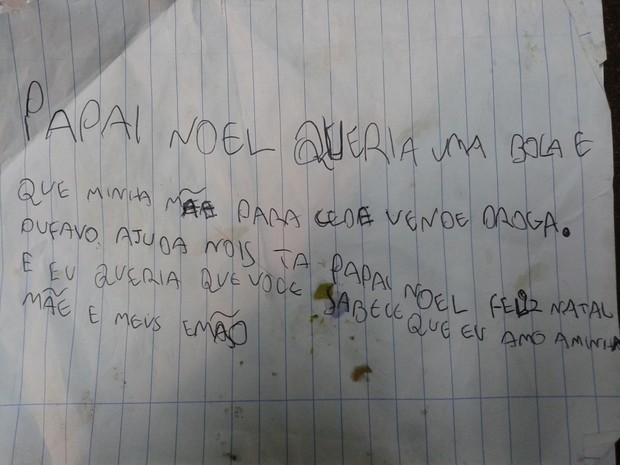 PAPAI NOEL QUERIA UMA BOLA E
QUE MINHA MÃE PARA CEDE VENDE DROGA.
PUFAVO, AJUDA NOIS TA PAPAI NOEL FELIZ NATAL
E EU QUERIA QUE VOCE SABECE QUE EU AMO AMINHA
MÃE E MEUS EMÃO